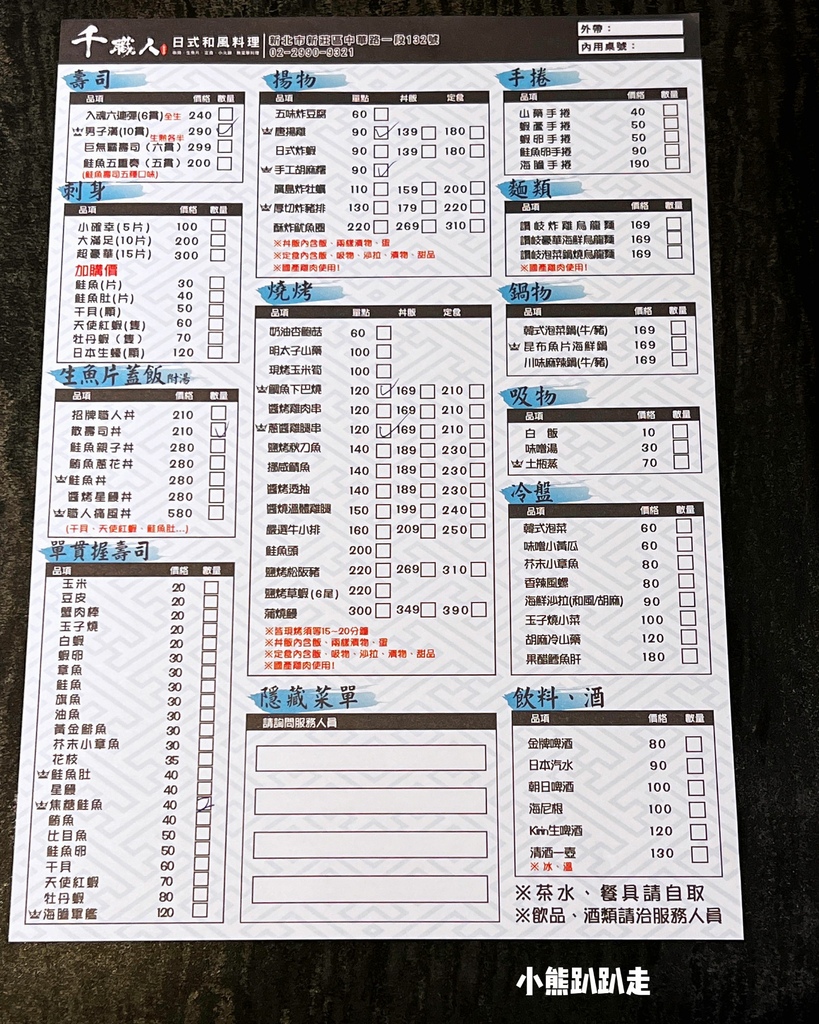 千職人 日式和風料理
新北市新莊區中華路一段132號
02-2990-9321
外帶：
內用桌號：
壽司
品項 價格 數量
入魂六連彈(6貫)全生 240
男子漢(10貫) 290
生熟各半
巨無霸壽司(六貫) 299
鮭魚五重奏(五貫) 200
(鮭魚壽司五種口味)
刺身
品項 價格 數量
小確幸(5片) 100
大滿足(10片) 200
超豪華(15片) 300
加購價
鮭魚(片) 30
鮭魚肚(片) 40
干貝(顆) 50
天使紅蝦(隻) 60
牡丹蝦(隻) 70
日本生蠔(顆) 120
生魚片蓋飯附湯
品項 價格 數量
招牌職人丼 210
散壽司丼 210
鮭魚親子丼 280
鮪魚蔥花丼 280
鮭魚丼 280
醬烤星鰻丼 280
職人痛風丼 580
(干貝、天使紅蝦、鮭魚肚...)
單貫握壽司
品項 價格 數量
玉米 20
豆皮 20
蟹肉棒 20
玉子燒 20
白蝦 20
蝦卵 30
章魚 30
鮭魚 30
旗魚 30
油魚 30
黃金鯡魚 30
芥末小章魚 30
花枝 35
鮭魚肚 40
星鰻 40
焦糖鮭魚 40 2
鮪魚 40
比目魚 50
鮭魚卵 50
干貝 60
天使紅蝦 70
牡丹蝦 80
海膽軍艦 120
揚物
品項 單點 丼飯 定食
五味炸豆腐 60
唐揚雞 90 139 180
日式炸蝦 90 139 180
手工胡麻糬 90
廣島炸牡蠣 110 159 200
厚切炸豬排 130 179 220
酥炸魷魚圈 220 269 310
※丼飯內含飯、兩樣漬物、蛋
※定食內含飯、吸物、沙拉、漬物、甜品
※國產雞肉使用!
燒烤
品項 單點 丼飯 定食
奶油杏鮑菇 60
明太子山藥 100
現烤玉米筍 100
鯛魚下巴燒 120 169 210
醬烤雞肉串 120 169 210
蔥醬雞腿串 120 169 210
鹽烤秋刀魚 140 189 230
挪威鯖魚 140 189 230
醬烤透抽 140 189 230
醬燒溫體雞腿 150 199 240
嚴選牛小排 160 209 250
鮭魚頭 200
鹽烤松阪豬 220 269 310
鹽烤草蝦(6尾) 220
蒲燒鰻 300 349 390
※皆現烤須等15~20分鐘
※丼飯內含飯、兩樣漬物、蛋
※定食內含飯、吸物、沙拉、漬物、甜品
※國產雞肉使用!
隱藏菜單
請詢問服務人員
手捲
品項 價格 數量
山藥手捲 40
蝦蘆手捲 50
蝦卵手捲 50
鮭魚卵手捲 90
海膽手捲 190
麵類
品項 價格 數量
讚岐炸雞烏龍麵 169
讚岐豪華海鮮烏龍麵 169
讚岐泡菜鍋燒烏龍麵 169
※國產雞肉使用!
鍋物
品項 價格 數量
韓式泡菜鍋(牛/豬) 169
昆布魚片海鮮鍋 169
川味麻辣鍋(牛/豬) 169
吸物
品項 價格 數量
白飯 10
味噌湯 30
土瓶蒸 70
冷盤
品項 價格 數量
韓式泡菜 60
味噌小黃瓜 60
芥末小章魚 80
香辣風螺 80
海鮮沙拉(和風/胡麻) 90
玉子燒小菜 100
胡麻冷山藥 120
果醋鱈魚肝 180
飲料、酒
品項 價格 數量
金牌啤酒 80
日本汽水 90
朝日啤酒 100
海尼根 100
Kirin生啤酒 120
清酒一壺 130
※冰、溫
※茶水、餐具請自取
※飲品、酒類請洽服務人員
小熊趴趴走